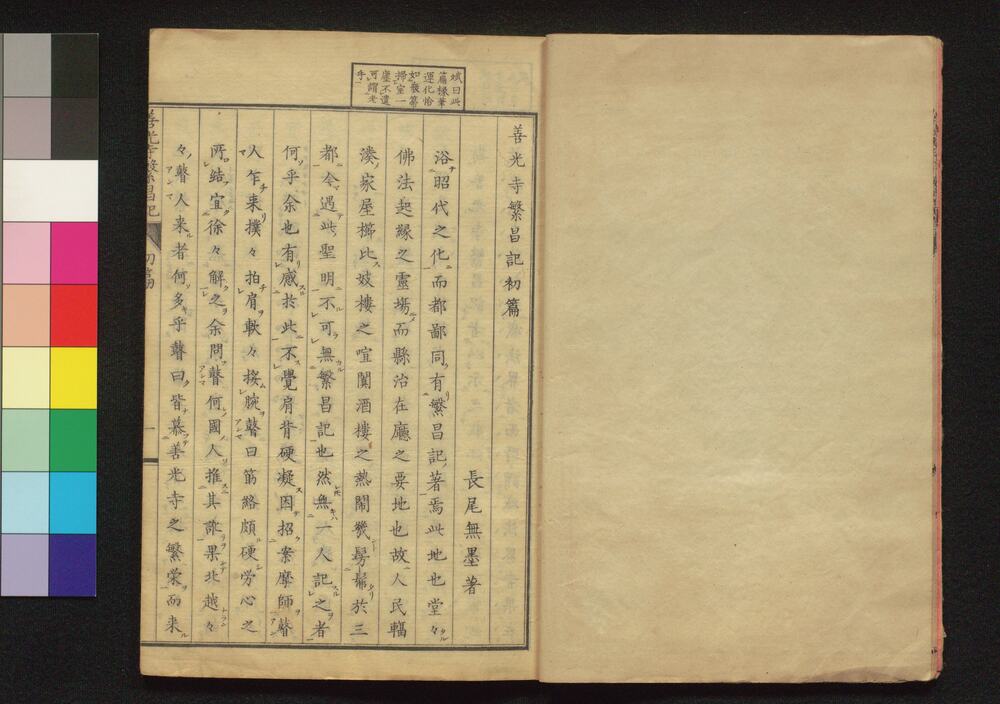 善光寺繁昌記初篇
長尾無墨著
浴昭代之化而都鄙同有繁昌記著焉此地也堂々
佛法起縁之靈場而縣治在廳之要地也故人民輻
湊家屋櫛比妓樓之喧闐酒樓之熱鬧幾髣髴於三
都今遇此聖明不可無繁昌記也然無一人記之者
何乎余也有感於此不覺肩背硬凝因招案摩師瞽
人乍来撲々拍肩軟々按腕瞽曰筋絡頗硬労心之
所結宜徐々解之余問瞽何國人推其訛果北越々
々瞽人来者何多乎瞽曰皆慕善光寺之繁榮而来
曰此
篇椽筆
運化恰
如幕
掃室一
塵不遺
可謂老
手
善光寺繁昌記 初篇 一